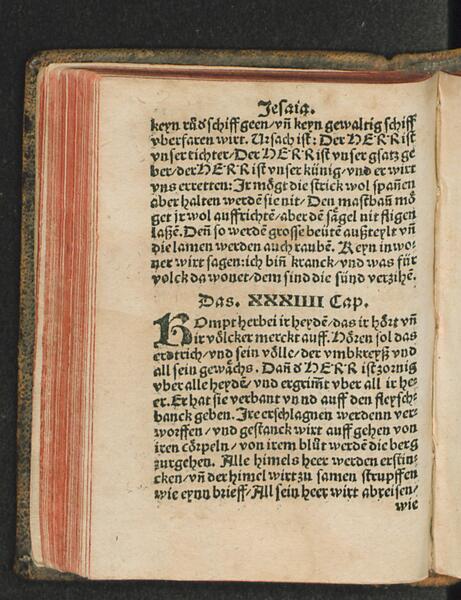 Jesaia.
keyn růdschiff geen/vñ keyn gewaltig schiff
vberfaren wirt. Ursach ist: Der HERR ist
vnser richter/Der HERR ist vnser gsatz ge
ber/der HERR ist vnser künig/vnd er wirt
vns erretten: Jr mögt die strick wol spañen
aber halten werdē sie nit/Den mastbaū mö
get jr wol auffrichtē/aber dē sägel nit fligen
laßē. Deñ so werdē grosse beütē außteylt vñ
die lamen werden auch raubē. Keyn inwo-
ner wirt sagen: ich biñ kranck/vnd was für
volck da wonet/dem sind die sünd verzihē.
Das. XXXIIII Cap.
KOmpt herbei ir heydē/das ir hört vñ
ir völcker merckt auff. Hören sol das
erdtrich/vnd sein völle/der vmbkreyß vnd
all sein gewächs. Dañ d HERR ist zornig
vber alle heydē/vnd ergrim̄t vber all ir he-
er. Er hat sie verbant vnnd auff den fleysch-
banck geben. Jre erschlagnen werdenn ver-
worffen/vnd gestanck wirt auff gehen von
iren cörpeln/von irem blůt werdē die berg
zurgehen. Alle himels heer werden erstin-
cken/vñ der himel wirt zu samen strupffen
wie eynn brieff/All sein heer wirt abreisen/
wie